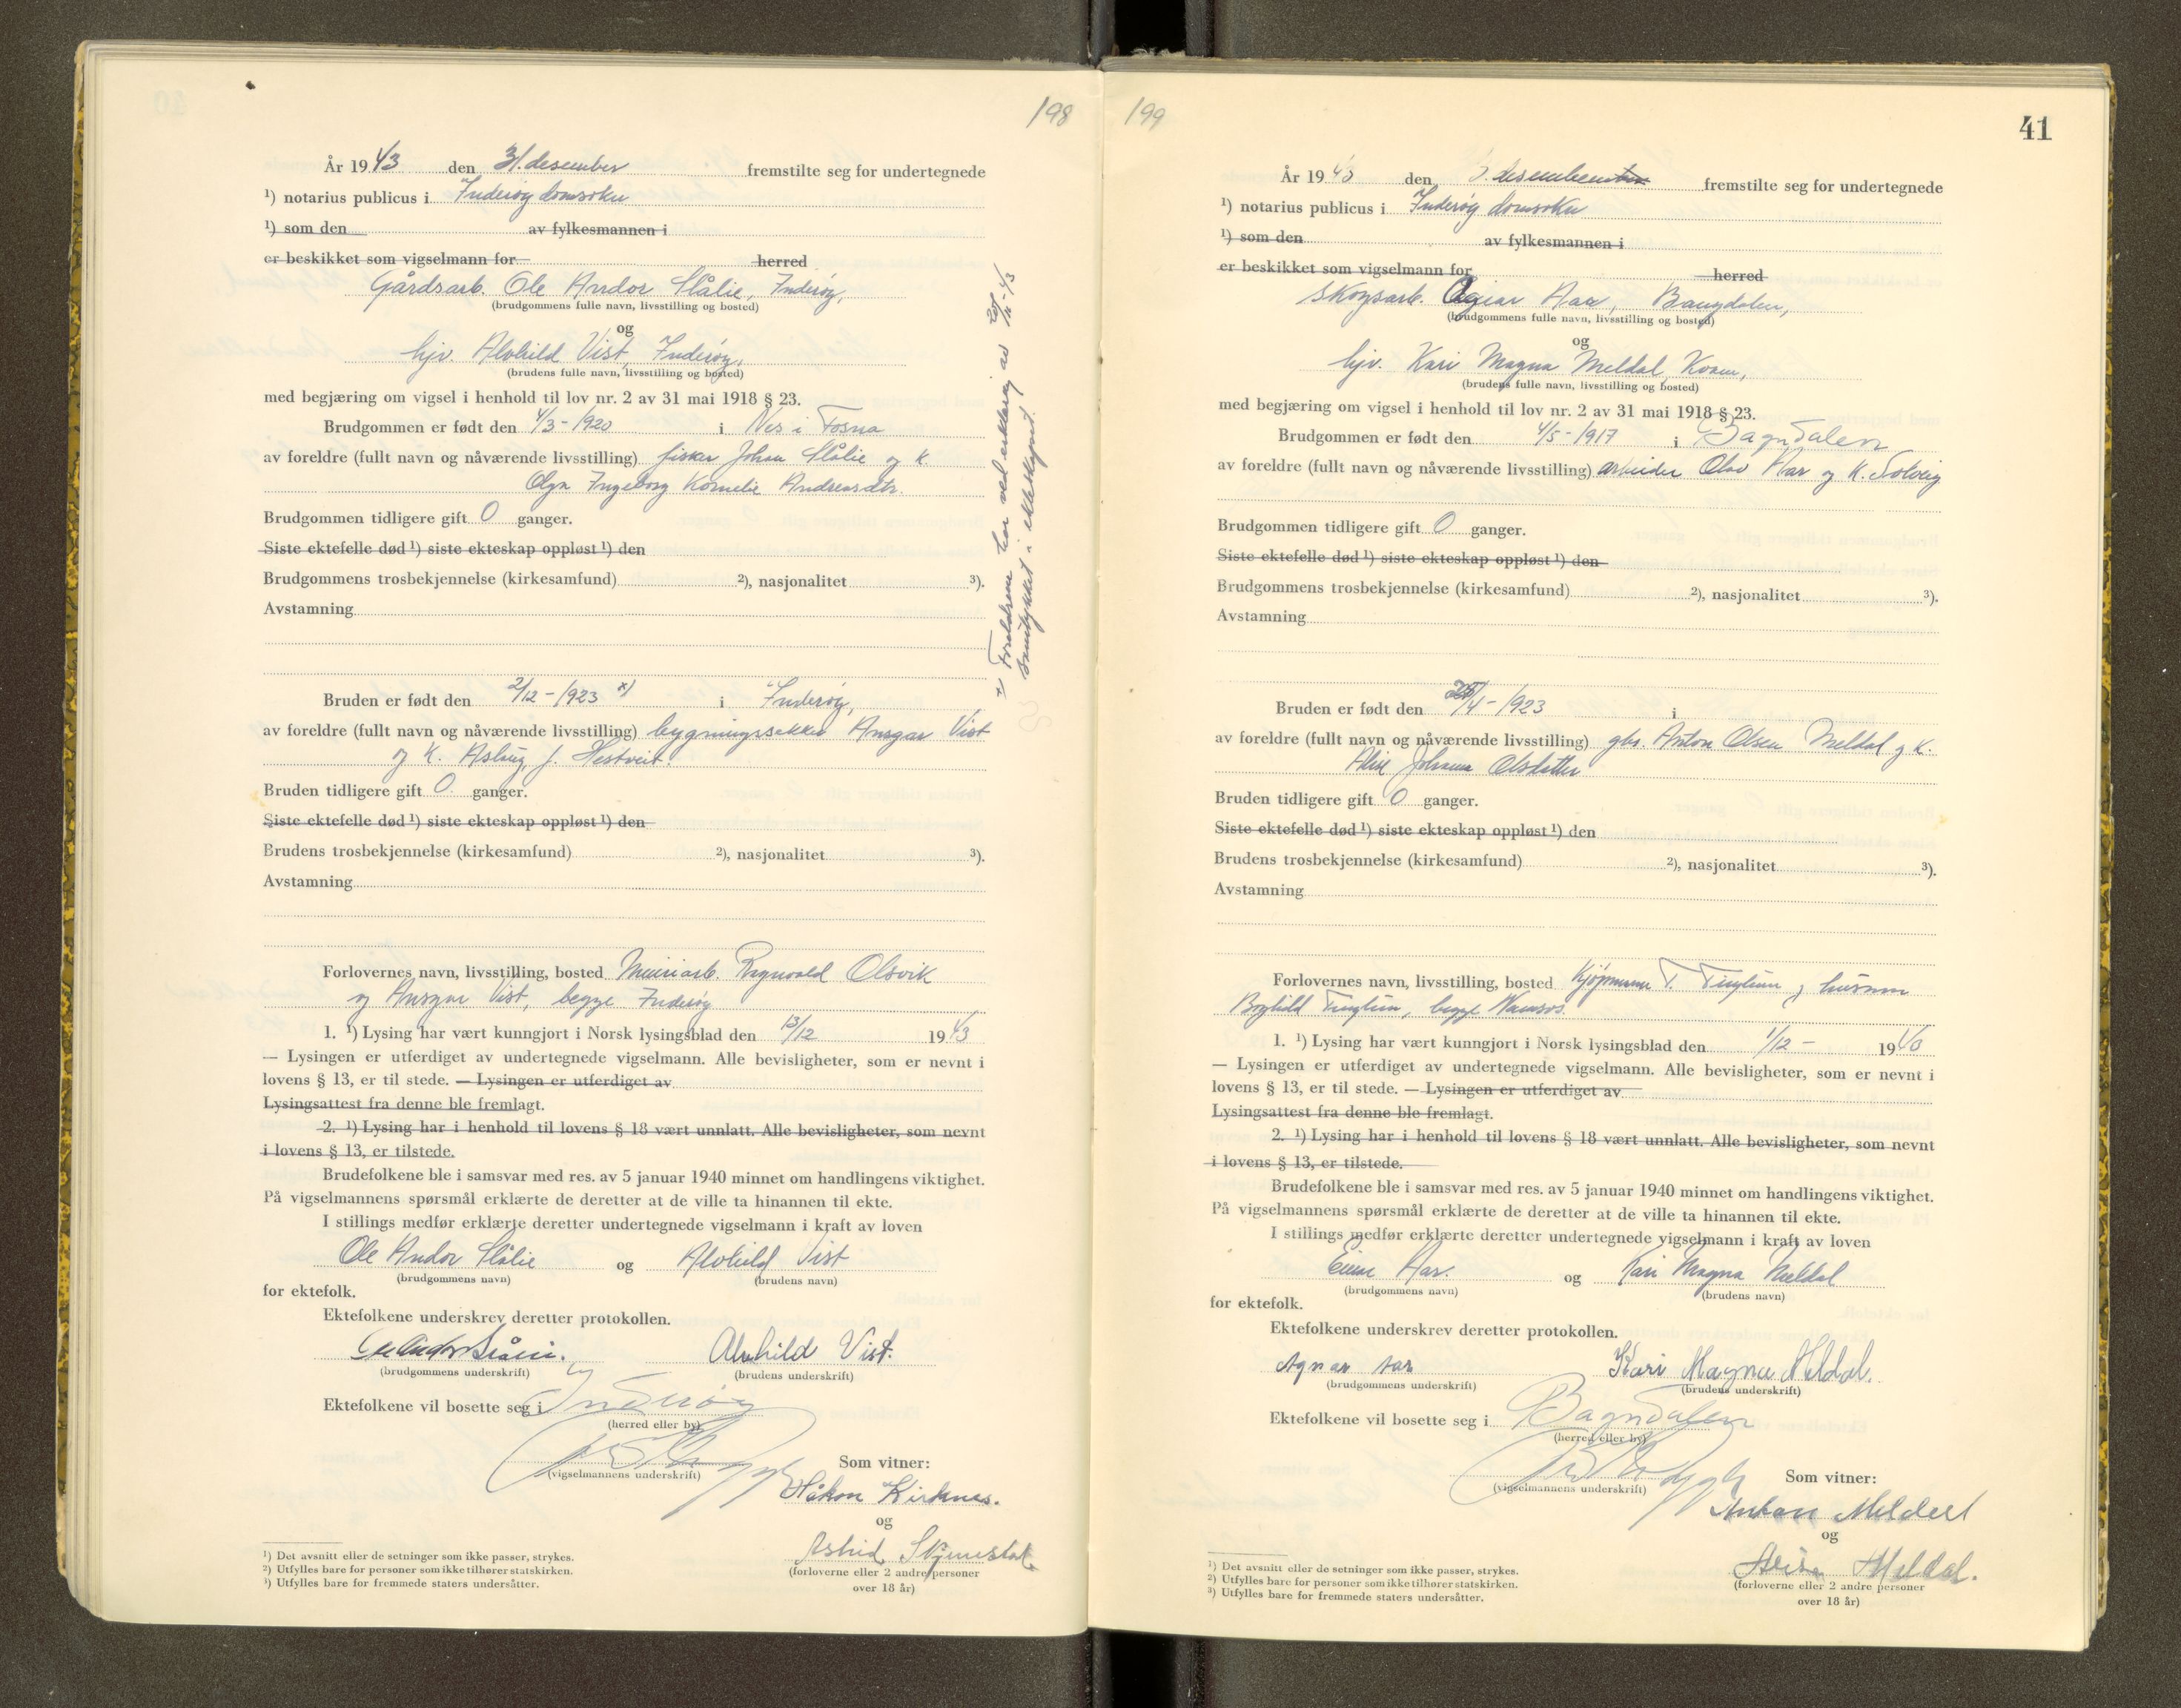 198
År 1943 den 31. desember fremstilte seg for undertegnede
¹) notarius publicus i Inderøy domsokn
¹) som den av fylkesmannen i
er beskikket som vigselmann for herred
Gårdsarb. Ole Andor Slålie, Inderøy,
(brudgommens fulle navn, livsstilling og bosted)
og
hjv. Alvhild Vist, Inderøy,
(brudens fulle navn, livsstilling og bosted)
med begjæring om vigsel i henhold til lov nr. 2 av 31 mai 1918 § 23.
Brudgommen er født den 4/3-1920 i Nes i Fosna
av foreldre (fullt navn og nåværende livsstilling) fisker Johan Slålie og k.
Olga Ingeborg Kornelie Andreasdtr.
Brudgommen tidligere gift 0 ganger.
Siste ektefelle død ¹) siste ekteskap oppløst ¹) den
Brudgommens trosbekjennelse (kirkesamfund) ²), nasjonalitet ³).
Avstamning
Bruden er født den 2/12-1923 x) i Inderøy,
av foreldre (fullt navn og nåværende livsstilling) bygningssekker Ansgar Vist
og k. Aslaug f. Hestveit.
Bruden tidligere gift 0. ganger.
Siste ektefelle død ¹) siste ekteskap oppløst ¹) den
Brudens trosbekjennelse (kirkesamfund) ²), nasjonalitet ³).
Avstamning
Forlovernes navn, livsstilling, bosted Meieriarb. Ragnvald Olsvik
og Ansgar Vist, begge Inderøy
1. ¹) Lysing har vært kunngjort i Norsk lysingsblad den 13/12 1943
— Lysingen er utferdiget av undertegnede vigselmann. Alle bevisligheter, som er nevnt i
lovens § 13, er til stede. — Lysingen er utferdiget av
Lysingsattest fra denne ble fremlagt.
2. ¹) Lysing har i henhold til lovens § 18 vært unnlatt. Alle bevisligheter, som nevnt
i lovens § 13, er tilstede.
Brudefolkene ble i samsvar med res. av 5 januar 1940 minnet om handlingens viktighet.
På vigselmannens spørsmål erklærte de deretter at de ville ta hinannen til ekte.
I stillings medfør erklærte deretter undertegnede vigselmann i kraft av loven
Ole Andor Slålie og Alvhild Vist
(brudgommens navn) (brudens navn)
for ektefolk.
Ektefolkene underskrev deretter protokollen.
Ole Andor Slålie. Alvhild Vist.
(brudgommens underskrift) (brudens underskrift)
Ektefolkene vil bosette seg i Inderøy
(herred eller by)
(vigselmannens underskrift)
Som vitner:
Håkon Kirknes.
og
Astrid Skjemstad
(forloverne eller 2 andre personer
over 18 år)
¹) Det avsnitt eller de setninger som ikke passer, strykes.
²) Utfylles bare for personer som ikke tilhører statskirken.
³) Utfylles bare for fremmede staters undersåtter.
x) Foreldrene har ved erklæring av 20/12-43
samtykket i ekteskapet.
199
41
År 1943 den 3. desember fremstilte seg for undertegnede
¹) notarius publicus i Inderøy domsokn
¹) som den av fylkesmannen i
er beskikket som vigselmann for herred
Skogsarb. Agnar Aar, Bangdalen,
(brudgommens fulle navn, livsstilling og bosted)
og
hjv. Kari Magna Meldal, Kvam,
(brudens fulle navn, livsstilling og bosted)
med begjæring om vigsel i henhold til lov nr. 2 av 31 mai 1918 § 23.
Brudgommen er født den 4/5-1917 i Bagndalen
av foreldre (fullt navn og nåværende livsstilling) arbeider Olav Aar og k. Solveig
Brudgommen tidligere gift 0 ganger.
Siste ektefelle død ¹) siste ekteskap oppløst ¹) den
Brudgommens trosbekjennelse (kirkesamfund) ²), nasjonalitet ³).
Avstamning
Bruden er født den /4-1923 i
av foreldre (fullt navn og nåværende livsstilling) gbr. Anton Olsen Meldal og k.
Johanna Olsdatter
Bruden tidligere gift 0 ganger.
Siste ektefelle død ¹) siste ekteskap oppløst ¹) den
Brudens trosbekjennelse (kirkesamfund) ²), nasjonalitet ³).
Avstamning
Forlovernes navn, livsstilling, bosted Kjøpmann T. Tinglum og husmor
Borghild Tinglum, begge Namsos.
1. ¹) Lysing har vært kunngjort i Norsk lysingsblad den 1/12 - 1943
— Lysingen er utferdiget av undertegnede vigselmann. Alle bevisligheter, som er nevnt i
lovens § 13, er til stede. — Lysingen er utferdiget av
Lysingsattest fra denne ble fremlagt.
2. ¹) Lysing har i henhold til lovens § 18 vært unnlatt. Alle bevisligheter, som nevnt
i lovens § 13, er tilstede.
Brudefolkene ble i samsvar med res. av 5 januar 1940 minnet om handlingens viktighet.
På vigselmannens spørsmål erklærte de deretter at de ville ta hinannen til ekte.
I stillings medfør erklærte deretter undertegnede vigselmann i kraft av loven
Einar Aar. og Kari Magna Meldal
(brudgommens navn) (brudens navn)
for ektefolk.
Ektefolkene underskrev deretter protokollen.
Agnar Aar Kari Magna Meldal.
(brudgommens underskrift) (brudens underskrift)
Ektefolkene vil bosette seg i Bagndalen
(herred eller by)
(vigselmannens underskrift)
Som vitner:
Anton Meldal
og
Meldal.
(forloverne eller 2 andre personer
over 18 år)
¹) Det avsnitt eller de setninger som ikke passer, strykes.
²) Utfylles bare for personer som ikke tilhører statskirken.
³) Utfylles bare for fremmede staters undersåtter.